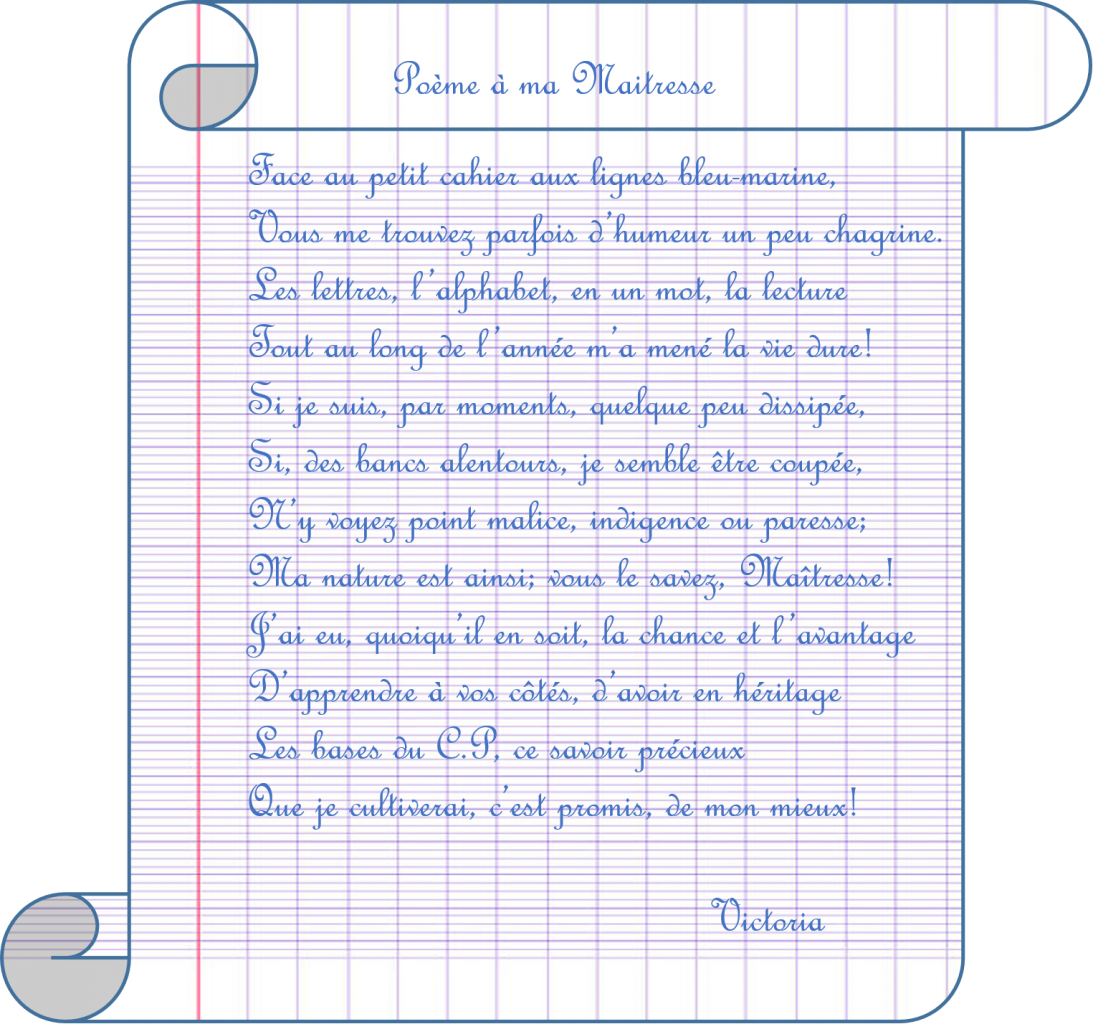 Poème à ma Maitresse
Face au petit cahier aux lignes bleu-marine,
Vous me trouvez parfois d'humeur un peu chagrine.
Les lettres, l'alphabet, en un mot, la lecture
Tout au long de l'année m'a mené la vie dure!
Si je suis, par moments, quelque peu dissipée,
Si, des bancs alentours, je semble être coupée,
N'y voyez point malice, indigence ou paresse;
Ma nature est ainsi; vous le savez, Maîtresse!
J'ai eu, quoiqu'il en soit, la chance et l'avantage
D'apprendre à vos côtés, d'avoir en héritage
Les bases du C.P, ce savoir précieux
Que je cultiverai, c'est promis, de mon mieux!
Victoria